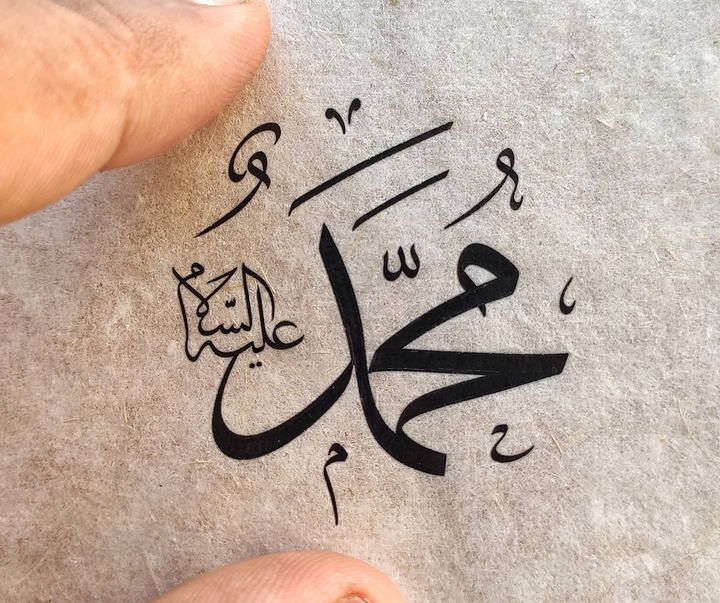 مُحَمَّدٌ
عليه السّلام